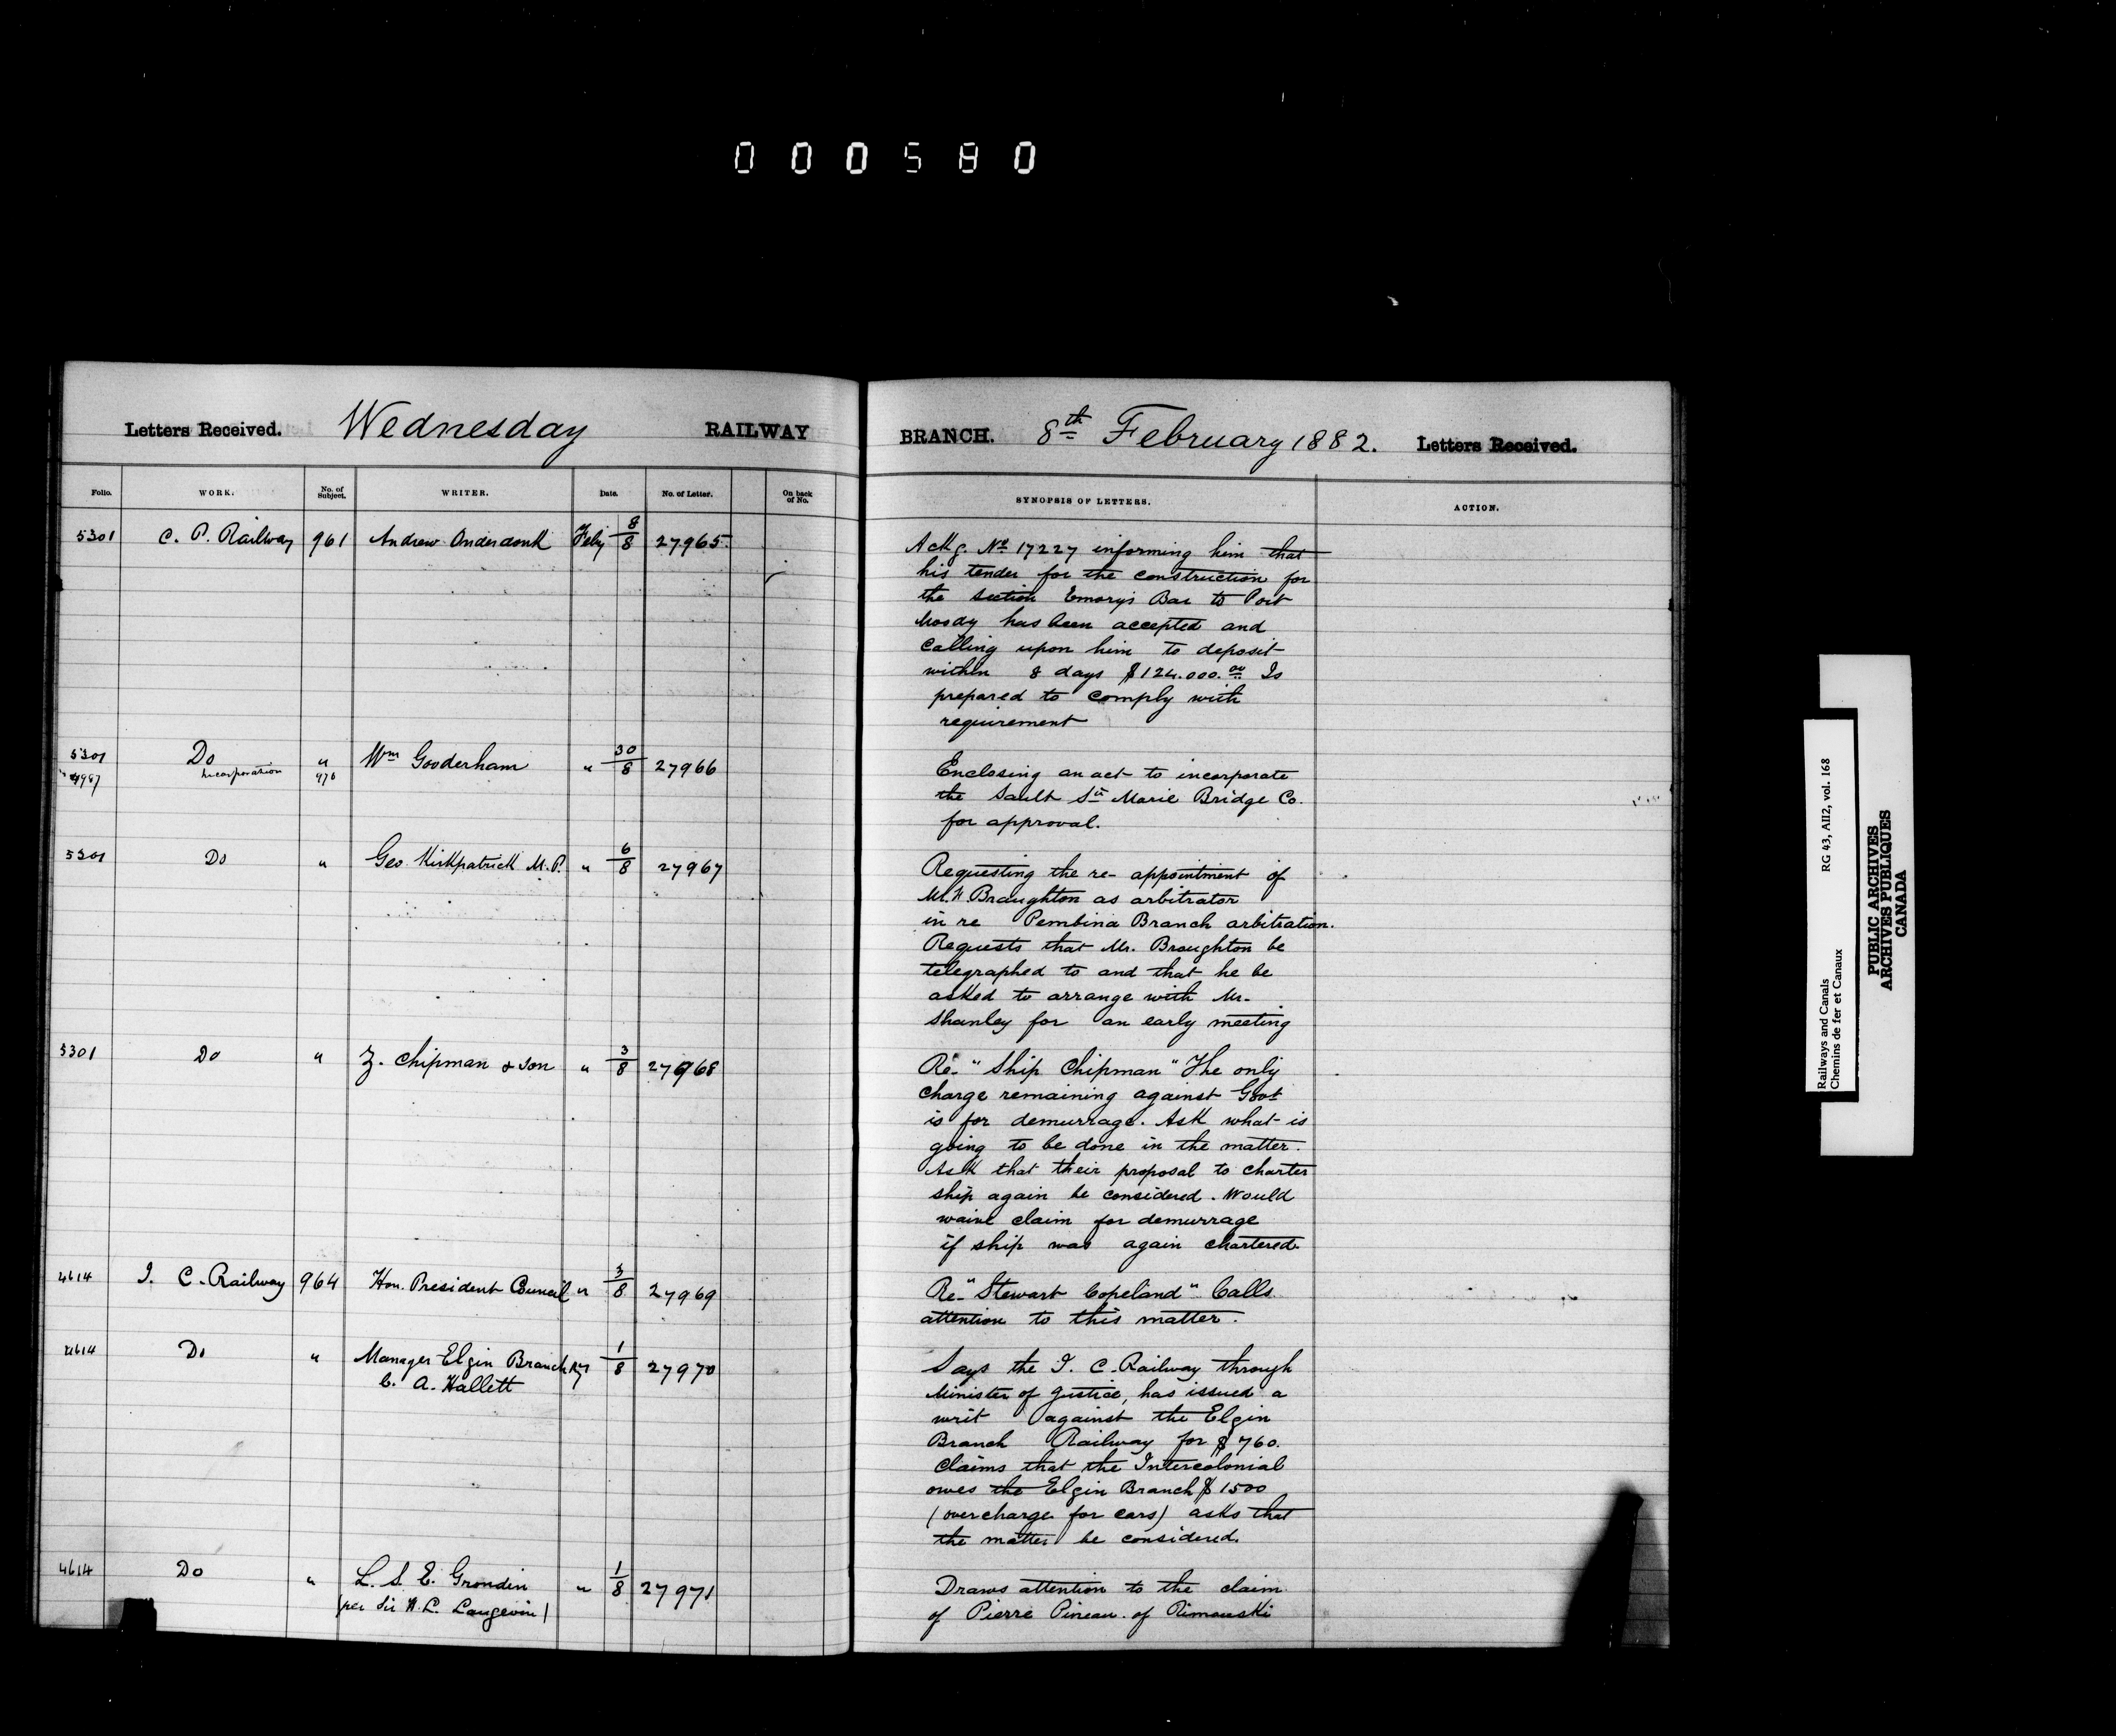 000580
Letters Received. Wednesday RAILWAY
BRANCH. 8th February 1882. Letters Received.
Folio. WORK. No. of Subject. WRITER. Date. No. of Letter. On back of No.
SYNOPSIS OF LETTERS. ACTION.
5301 C. P. Railway 961 Andrew Onderdonk Feby 8/8 27965
Ackg. No 17227 informing him that
his tender for the construction for
the section Emory's Bar to Port
Moody has been accepted and
calling upon him to deposit
within 8 days $124.000.00 Is
prepared to comply with
requirement
5301 Do " Wm Gooderham " 30/8 27966
4997 Incorporation 976
Enclosing an act to incorporate
the Sault Ste Marie Bridge Co.
for approval.
5301 Do " Geo. Kirkpatrick M.P. " 6/8 27967
Requesting the re-appointment of
Mr. F. Broughton as arbitrator
in re Pembina Branch arbitration.
Requests that Mr. Broughton be
telegraphed to and that he be
asked to arrange with Mr.
Shanley for an early meeting
5301 Do " Z. Chipman & Son " 3/8 27968
Re- "Ship Chipman" The only
charge remaining against Govt
is for demurrage. Ask what is
going to be done in the matter.
Ask that their proposal to charter
ship again be considered. Would
waive claim for demurrage
if ship was again chartered.
4614 I. C. Railway 964 Hon. President Council " 3/8 27969
Re- "Stewart Copeland" Calls
attention to this matter.
4614 Do " Manager Elgin Branch Ry 1/8 27970
C. A. Hallett
Says the I. C. Railway through
Minister of Justice, has issued a
writ against the Elgin
Branch Railway for $760.
Claims that the Intercolonial
owes the Elgin Branch $1500
(overcharge for cars) asks that
the matter be considered.
4614 Do " L. S. E. Grondin " 1/8 27971
(per Sir H. L. Langevin)
Draws attention to the claim
of Pierre Pineau of Rimouski
Railways and Canals RG 43, AII2, vol. 168
Chemins de fer et Canaux
PUBLIC ARCHIVES
ARCHIVES PUBLIQUES
CANADA